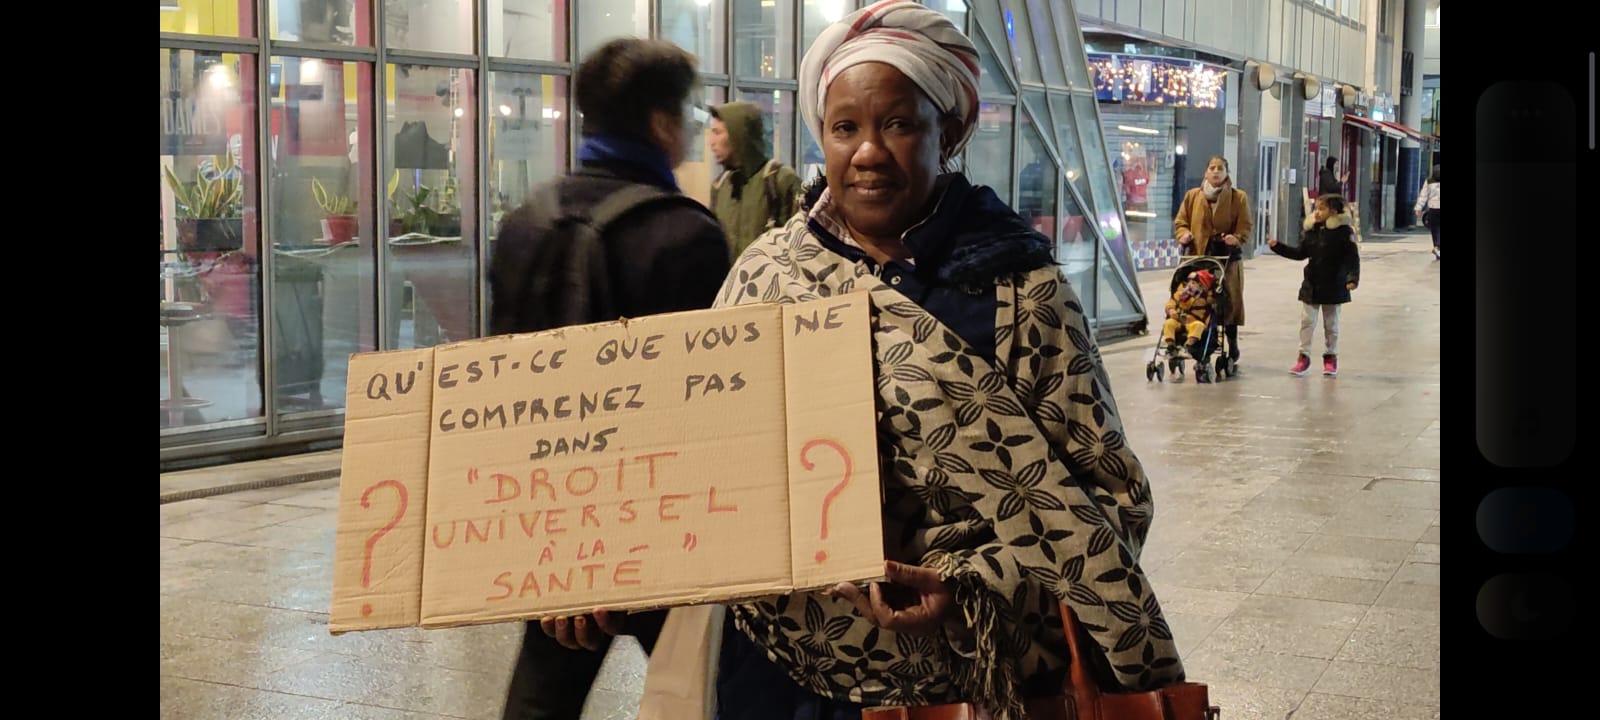 QU'EST-CE QUE VOUS NE
COMPRENEZ PAS
DANS
"DROIT
UNIVERSEL
À LA - "
SANTÉ
? ?
DAMES